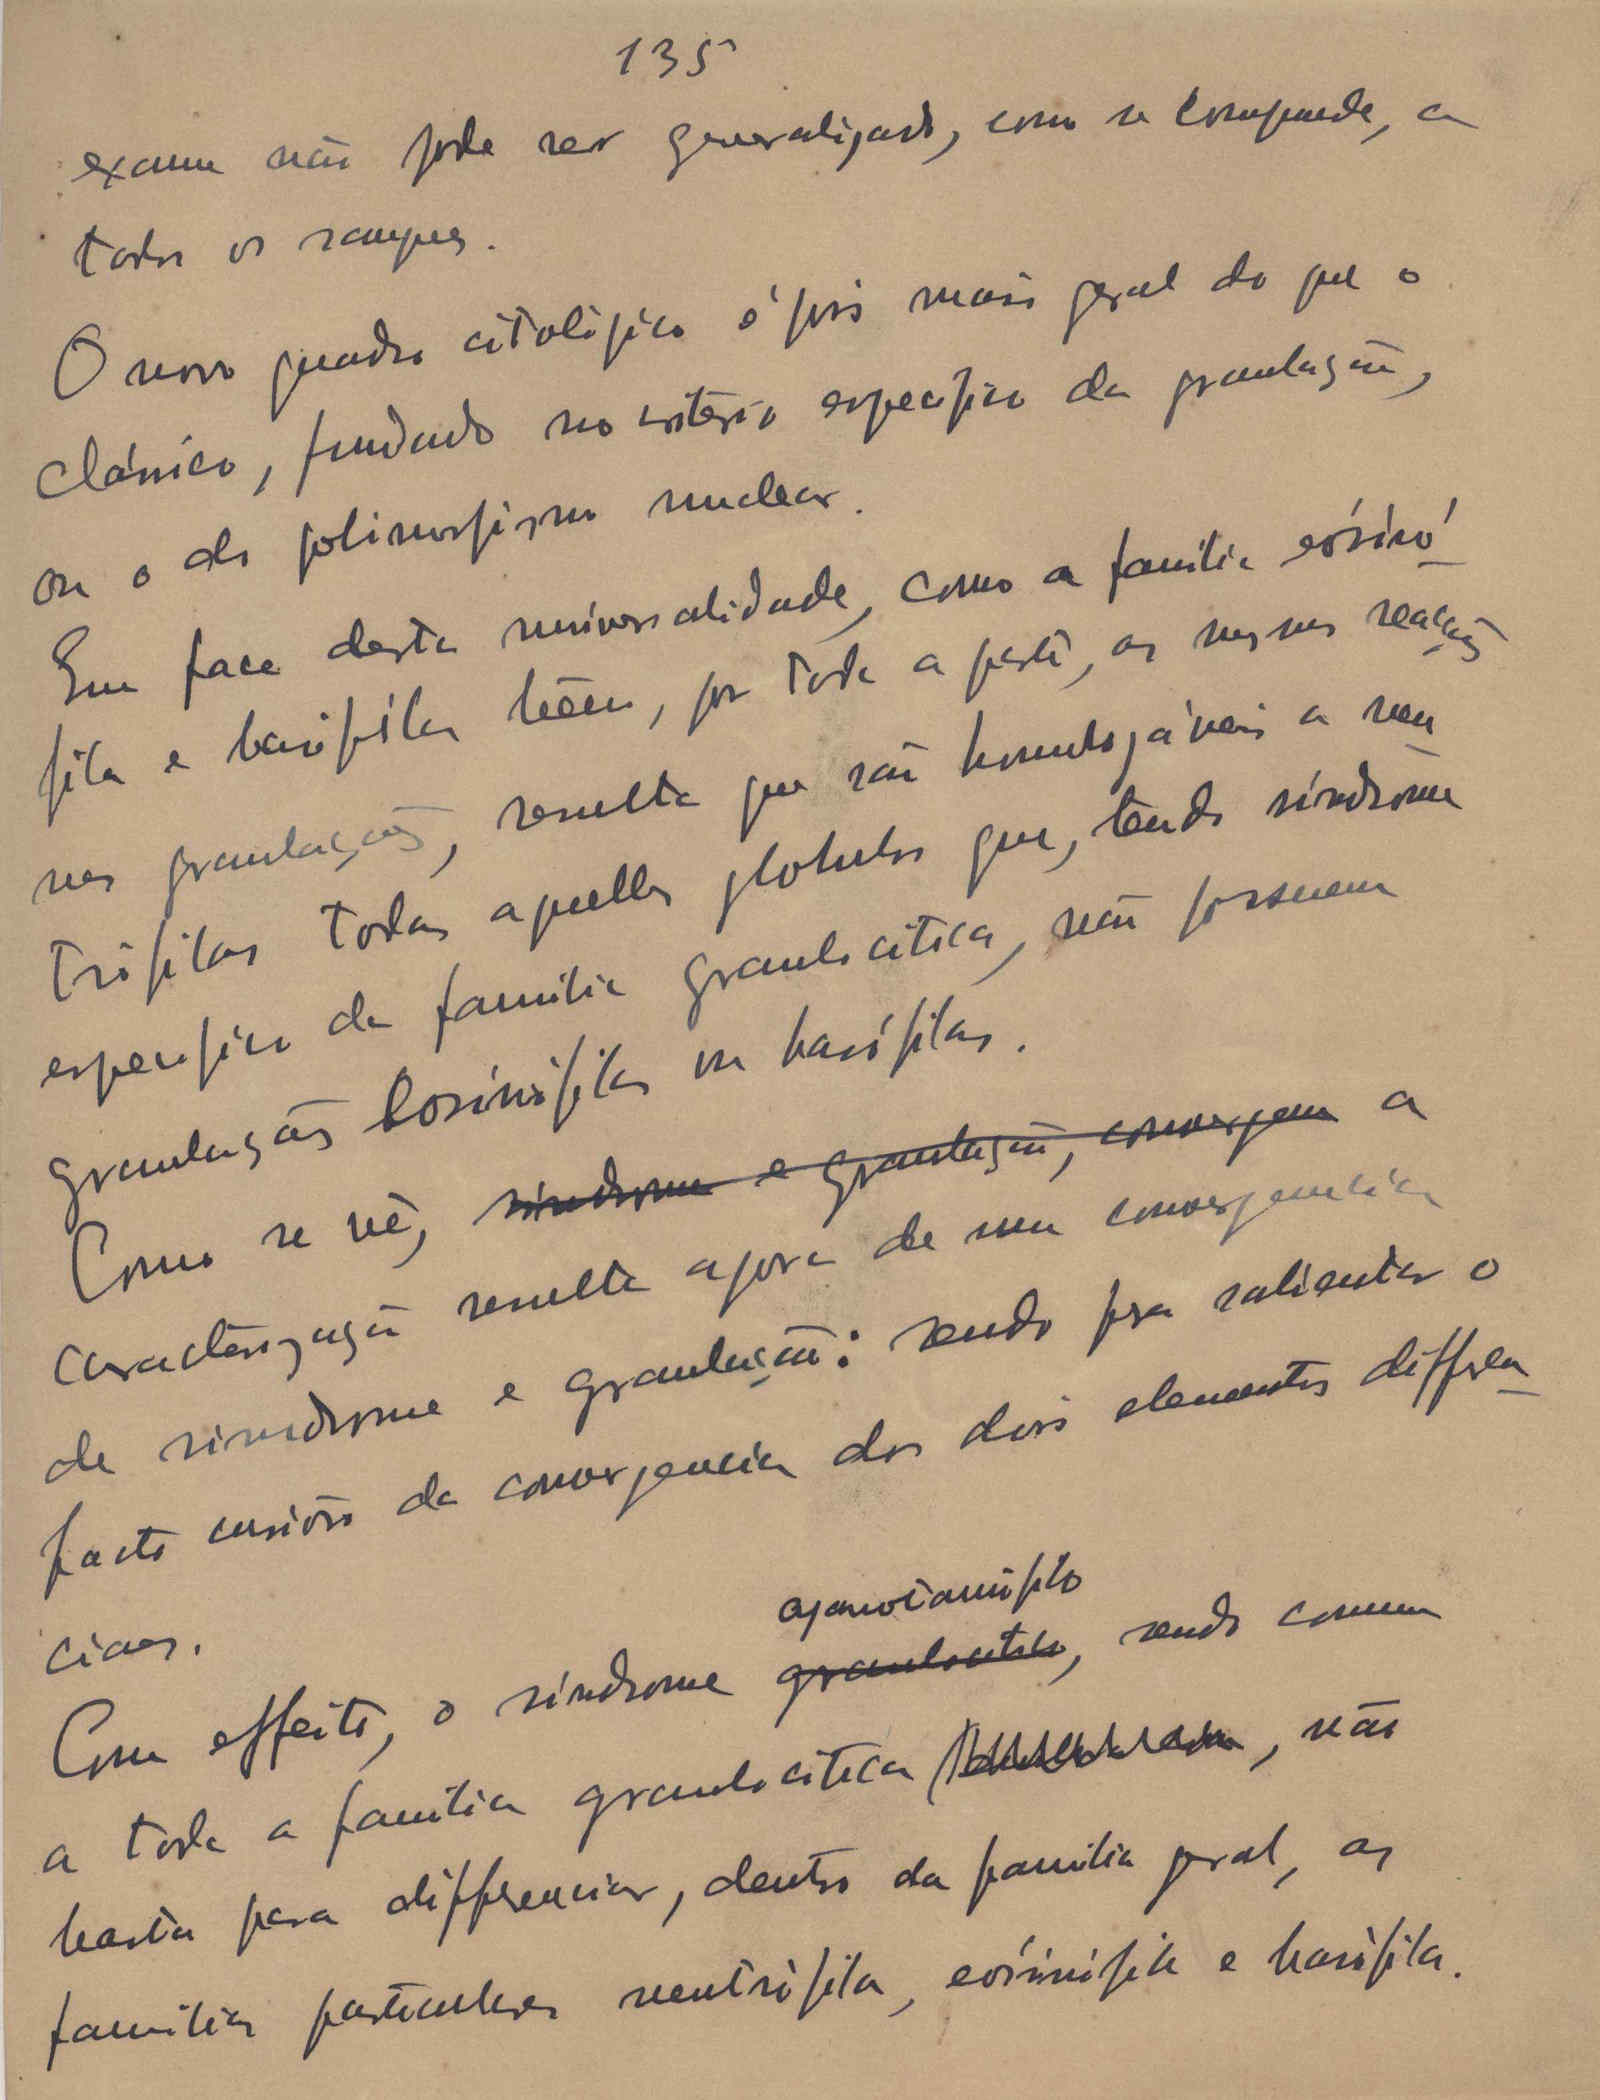 135
exame não pode ser generalizado, como se comprende, a
todos os sangues.
O novo quadro citológico é pois mais geral do que o
clássico, fundado no critério específico da granulação,
ou o do polimorfismo nuclear.
Em face desta universalidade, como a família eósinó-
fila e basófila têem, por toda a parte, as mesmas reacções
nas granulações, resulta que são homologáveis a neu
trófilas todas aquellas globulos que, tendo síndrome
específico da família granulocítica, não possuem
granulações eosinófilas ou basófilas.
Como se vê, síndrome e granulação, convergem a
caracterização resulta agora de uma convergencia
de sindrome e granulação: sendo pra salientar o
facto curioso da convergencia dos dois elementos differen-
ciaes.
ajanotamófilo
Com effeito, o síndrome granulocítico, sendo comum
a toda a família granulocítica, não
basta para differenciar, dentro da família geral, as
famílias particulares neutrófila, eósinófila e basófila.